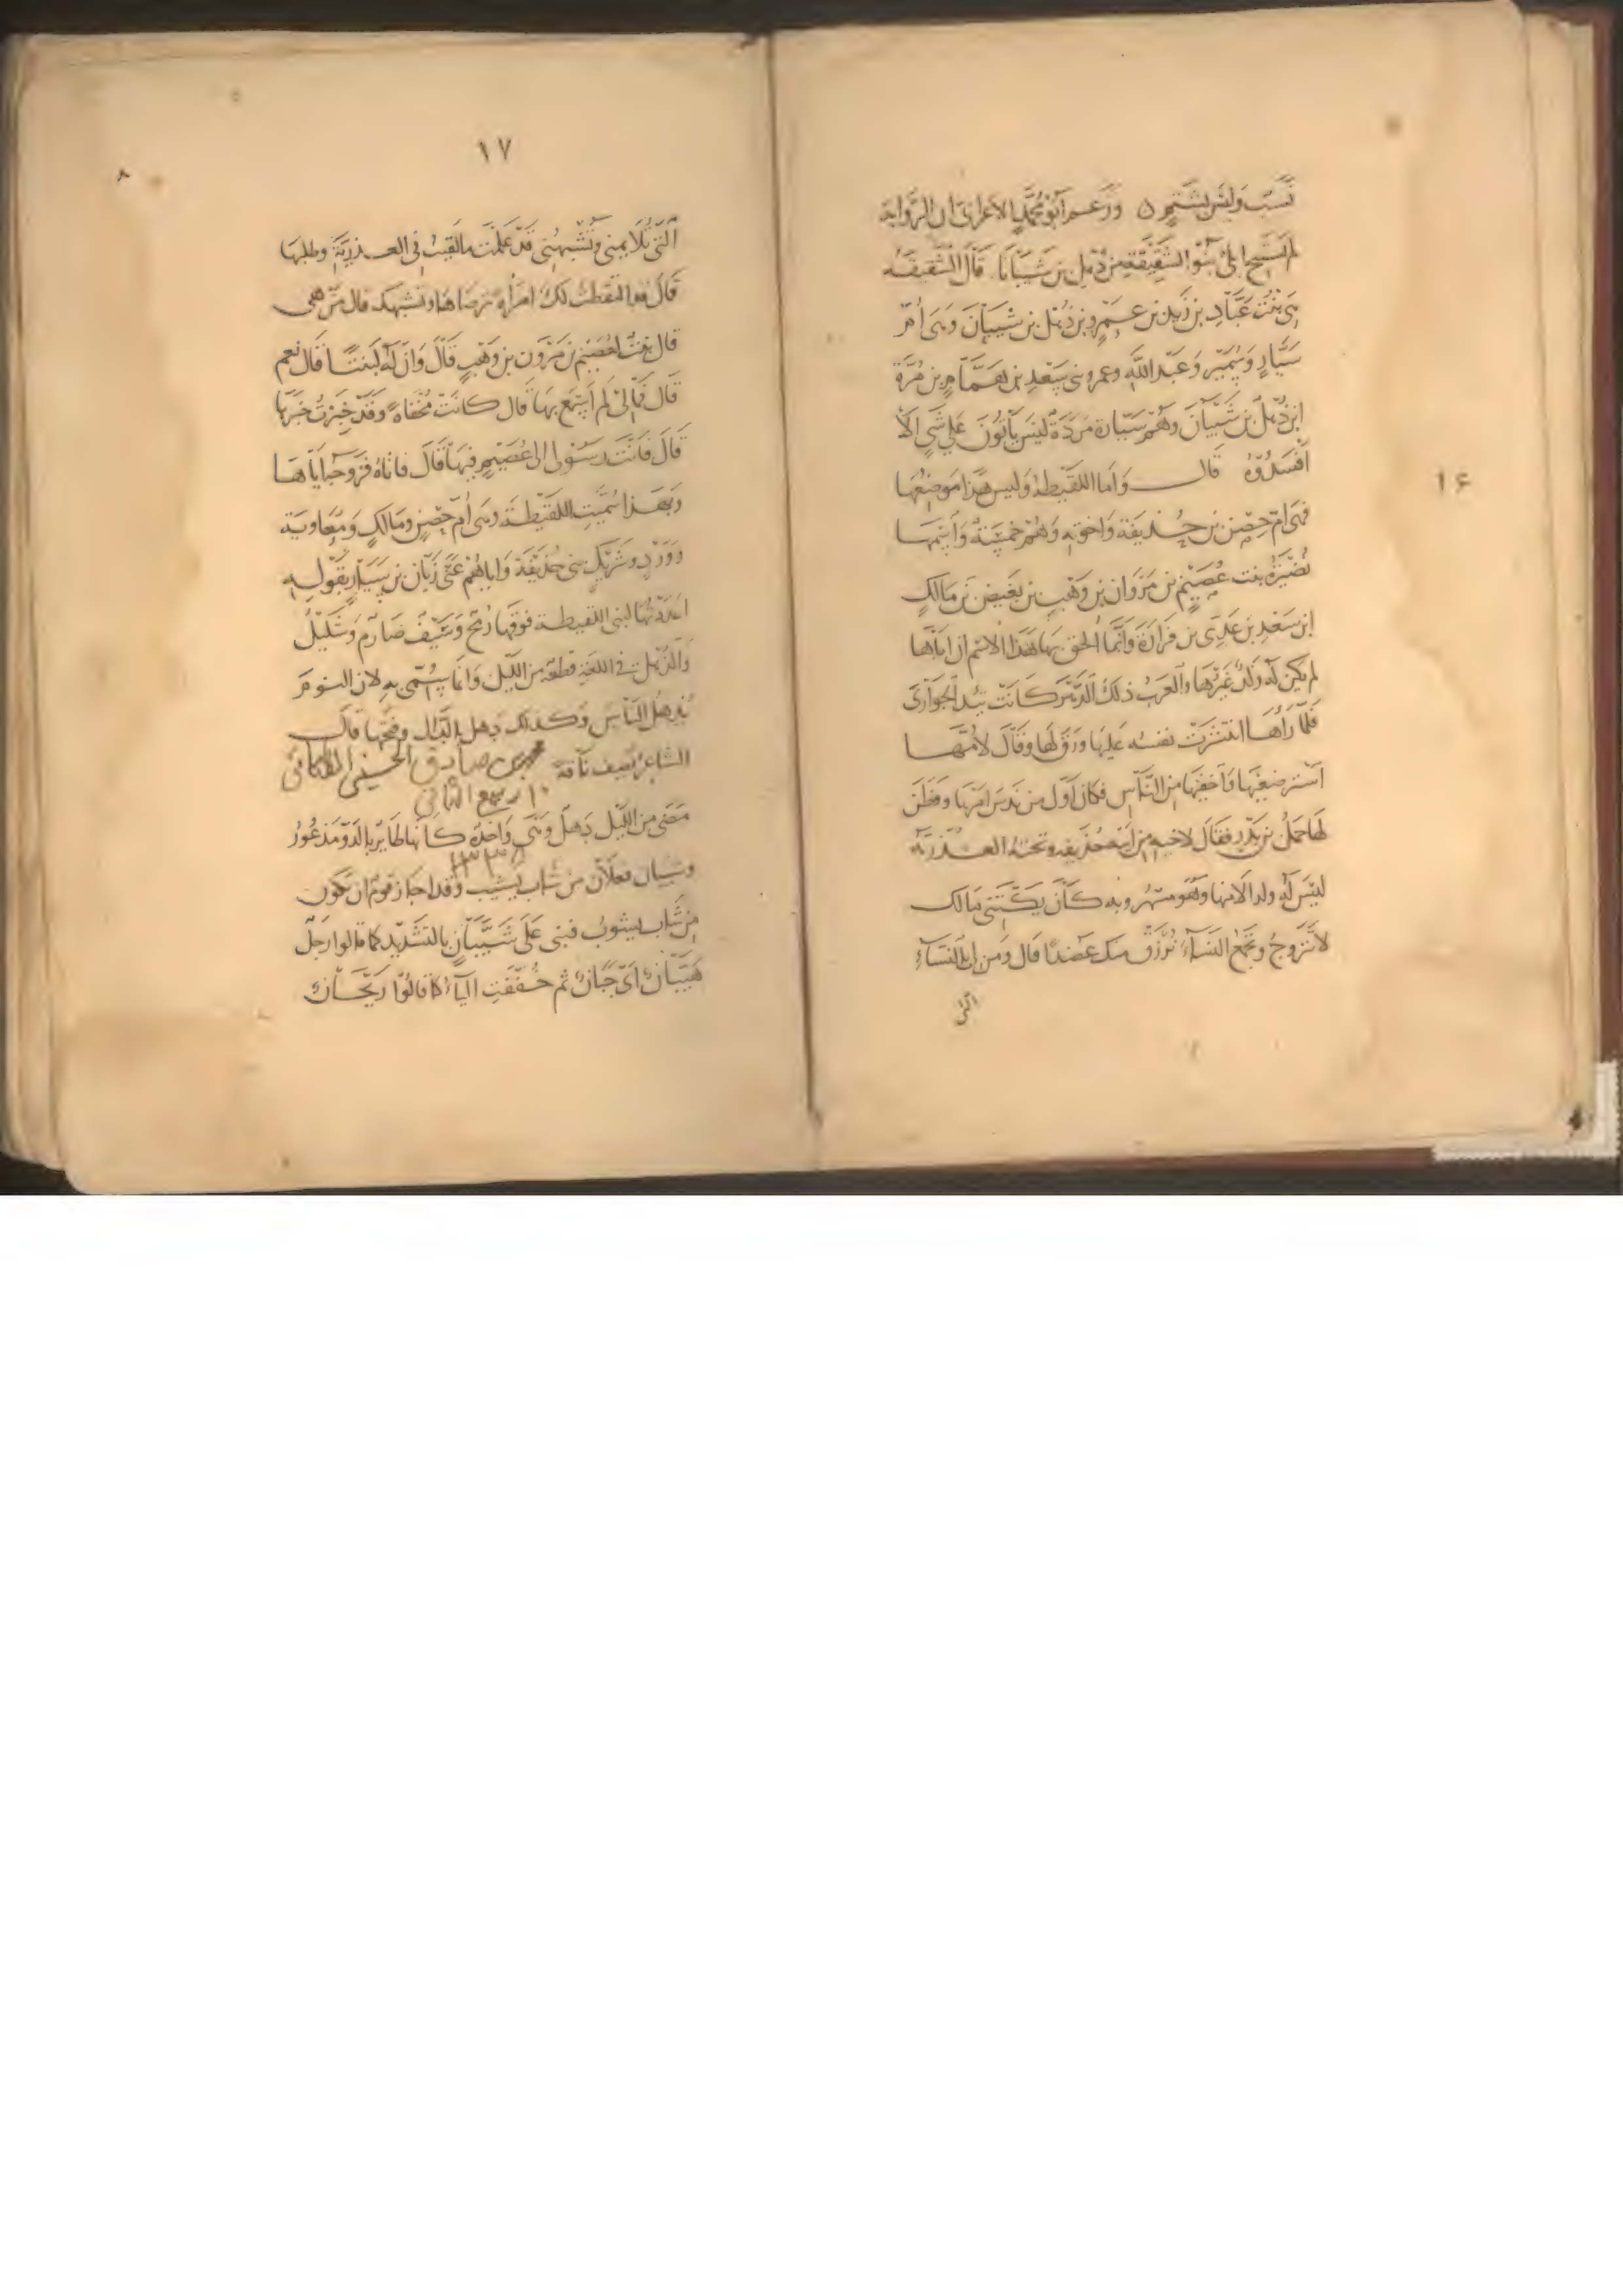 نَسَبٌ وَلَيْسَ بِشَتْمٍ ن وَزَعَمَ اَبُو مُحَمَّدٍ الاعرابى ان الرَّوَاية
لم يستبح ابلى بَنُو الشَّقِيْقَةِ مِنْ ذُهْلِ بن شَيْبَانَا قَالَ الشقيقة
هِىَ بِنْتُ عَبَّادِ بن زَيْد بن عَمْرِو بن ذُهْلِ بن شَيْبَانَ وَهِىَ اُمّ
سَيَّارٍ وَسُمَيْرٍ وَعَبْدِ اللّٰهِ وعمرو بنى سَعْدِ بن هَمَّامِ بن مُرَّة
ابن ذُهْلِ بن شَيْبَانَ وَهُمْ سَيَّارة مَرَدَةٌ لَيْسَ يَأْتُونَ عَلَى شَىءٍ الَّا
اَفْسَدُوْهُ قَال وَاَمَا اللَّقِيْطَةُ وَليس هٰذا مَوْضِعُهَا
فهىَ امّ حِصْن بن حُذيفَة وَاخوته وَهُمْ خَمْسَةٌ وَاسْمهَا
نُضَيْرَةُ بنت عُصَيْمِ بن مَرْوَان بن وَهْبِ بن بَغِيض بن مَالكٍ
ابن سَعْدِ بن عَدِىّ بن فَزَارَةَ وَانَّمَا اُلحق بِهَا هَذَا الاسْم ان اَبَاهَا
لم يكن لَهُ وَلَدٌ غَيْرُهَا والعَرَبُ ذلكَ الدَّهْر كَانَتْ تَئِدُ الجَوَارى
فَلَمَّا رَاَهَا انتشرَتْ نفسُه عَلَيهَا وَرَقَّ لَهَا وَقَالَ لاُمّهَا
استرضِعِيْهَا وَاَخفيْهَا مِنَ النَّاسِ فكان اَوَّل من امرَهَا وفَطَنَ
لَهَا حَمَلُ بن بَدْرٍ فقَالَ لاخيه حُذَيفه وتحته العُذْرِيَّة
لَيْسَ لَهُ ولد الا منها وَهُوَ مسْهر وبه كَانَ يَكْتَنى مَالك
لا تَتَزَوجُ وَتجْمَعُ النسَاءَ نُرْزَقْ منك عَضدًا قال وَمَنْ لى بالنسَاءِ
التى
١۶
١٧
٨
الَّتى تُلَايِمنى وَتُشْبِهُنى قَدْ عَلِمْتَ مالَقِيتُ فى العـذريَّةِ وطلبهَا
قَالَ فقد التقطتُ لكَ امْرَاَةً ترضاهَا وتشبهكَ قال مَن هى
قال بِنْتٌ لعُصَيْمِ بن مَرْوَن بن وَهْبٍ قَالَ وَانَّ لَهُ لَبنتًا قَالَ نعم
قَال فَمالى لَم اَسْمَع بِهَا قَال كَانَتْ مُخْفاةً وَقَدْ خَبَرْتُ خَبَرهَا
قَالَ فَاَنْتَ رَسُوْلى الى عُصَيْمٍ فِيهَا قَالَ فاتاهُ فزوجَه اياهَا
وَبهَـذا سُمِّيَتِ اللَّقِيْطَة وهى اُمّ حِصْنٍ وَمَالكٍ وَمُعَاوِيَة
وَوَرْدٍ وَشَريْكٍ بنى حُذَيْفَةَ وَاياهُمْ عَنَى زَبَّان بن سَيَّارٍ بقَوْلِه
اعْدَدْتُهَا لبنى اللَّقيطة فوقهَا رُمْحٌ وَسَيْفٌ صَارِمٌ وَشَلِيْلُ
وَالذّهل فى اللغَةِ قطعة مِنَ اللَّيْلِ وَانما يُسَمَّى به لان النوم
يُذهلُ الناسَ وَكذلك دهل بالدَّال وفتحهَا قال
الشاعر يصف ناقةً
محمد بن صادق الحسينى الطباطبائى
١٠ ربيع الثانى
١٣٣٨
مَضَى من اللَّيل دَهل وَهْىَ وَاحدَةٌ كَاَنَّهَا طَايرٌ بالدَّوّ مَذعُورُ
وشَيْبَان فَعْلَان من شَابَ يَشِيْبُ وَقد اجَاز قومٌ ان يكون
من شَابَ يَشُوبُ فبنى عَلَى شَيَّبَانٍ بالتشْدِيد كما قالوا رَجل
هَيَّبَانٌ اَىْ جَبَانٌ ثم خُفِّفَتِ اليآء كما قَالُوْا رَيْحَانٌ